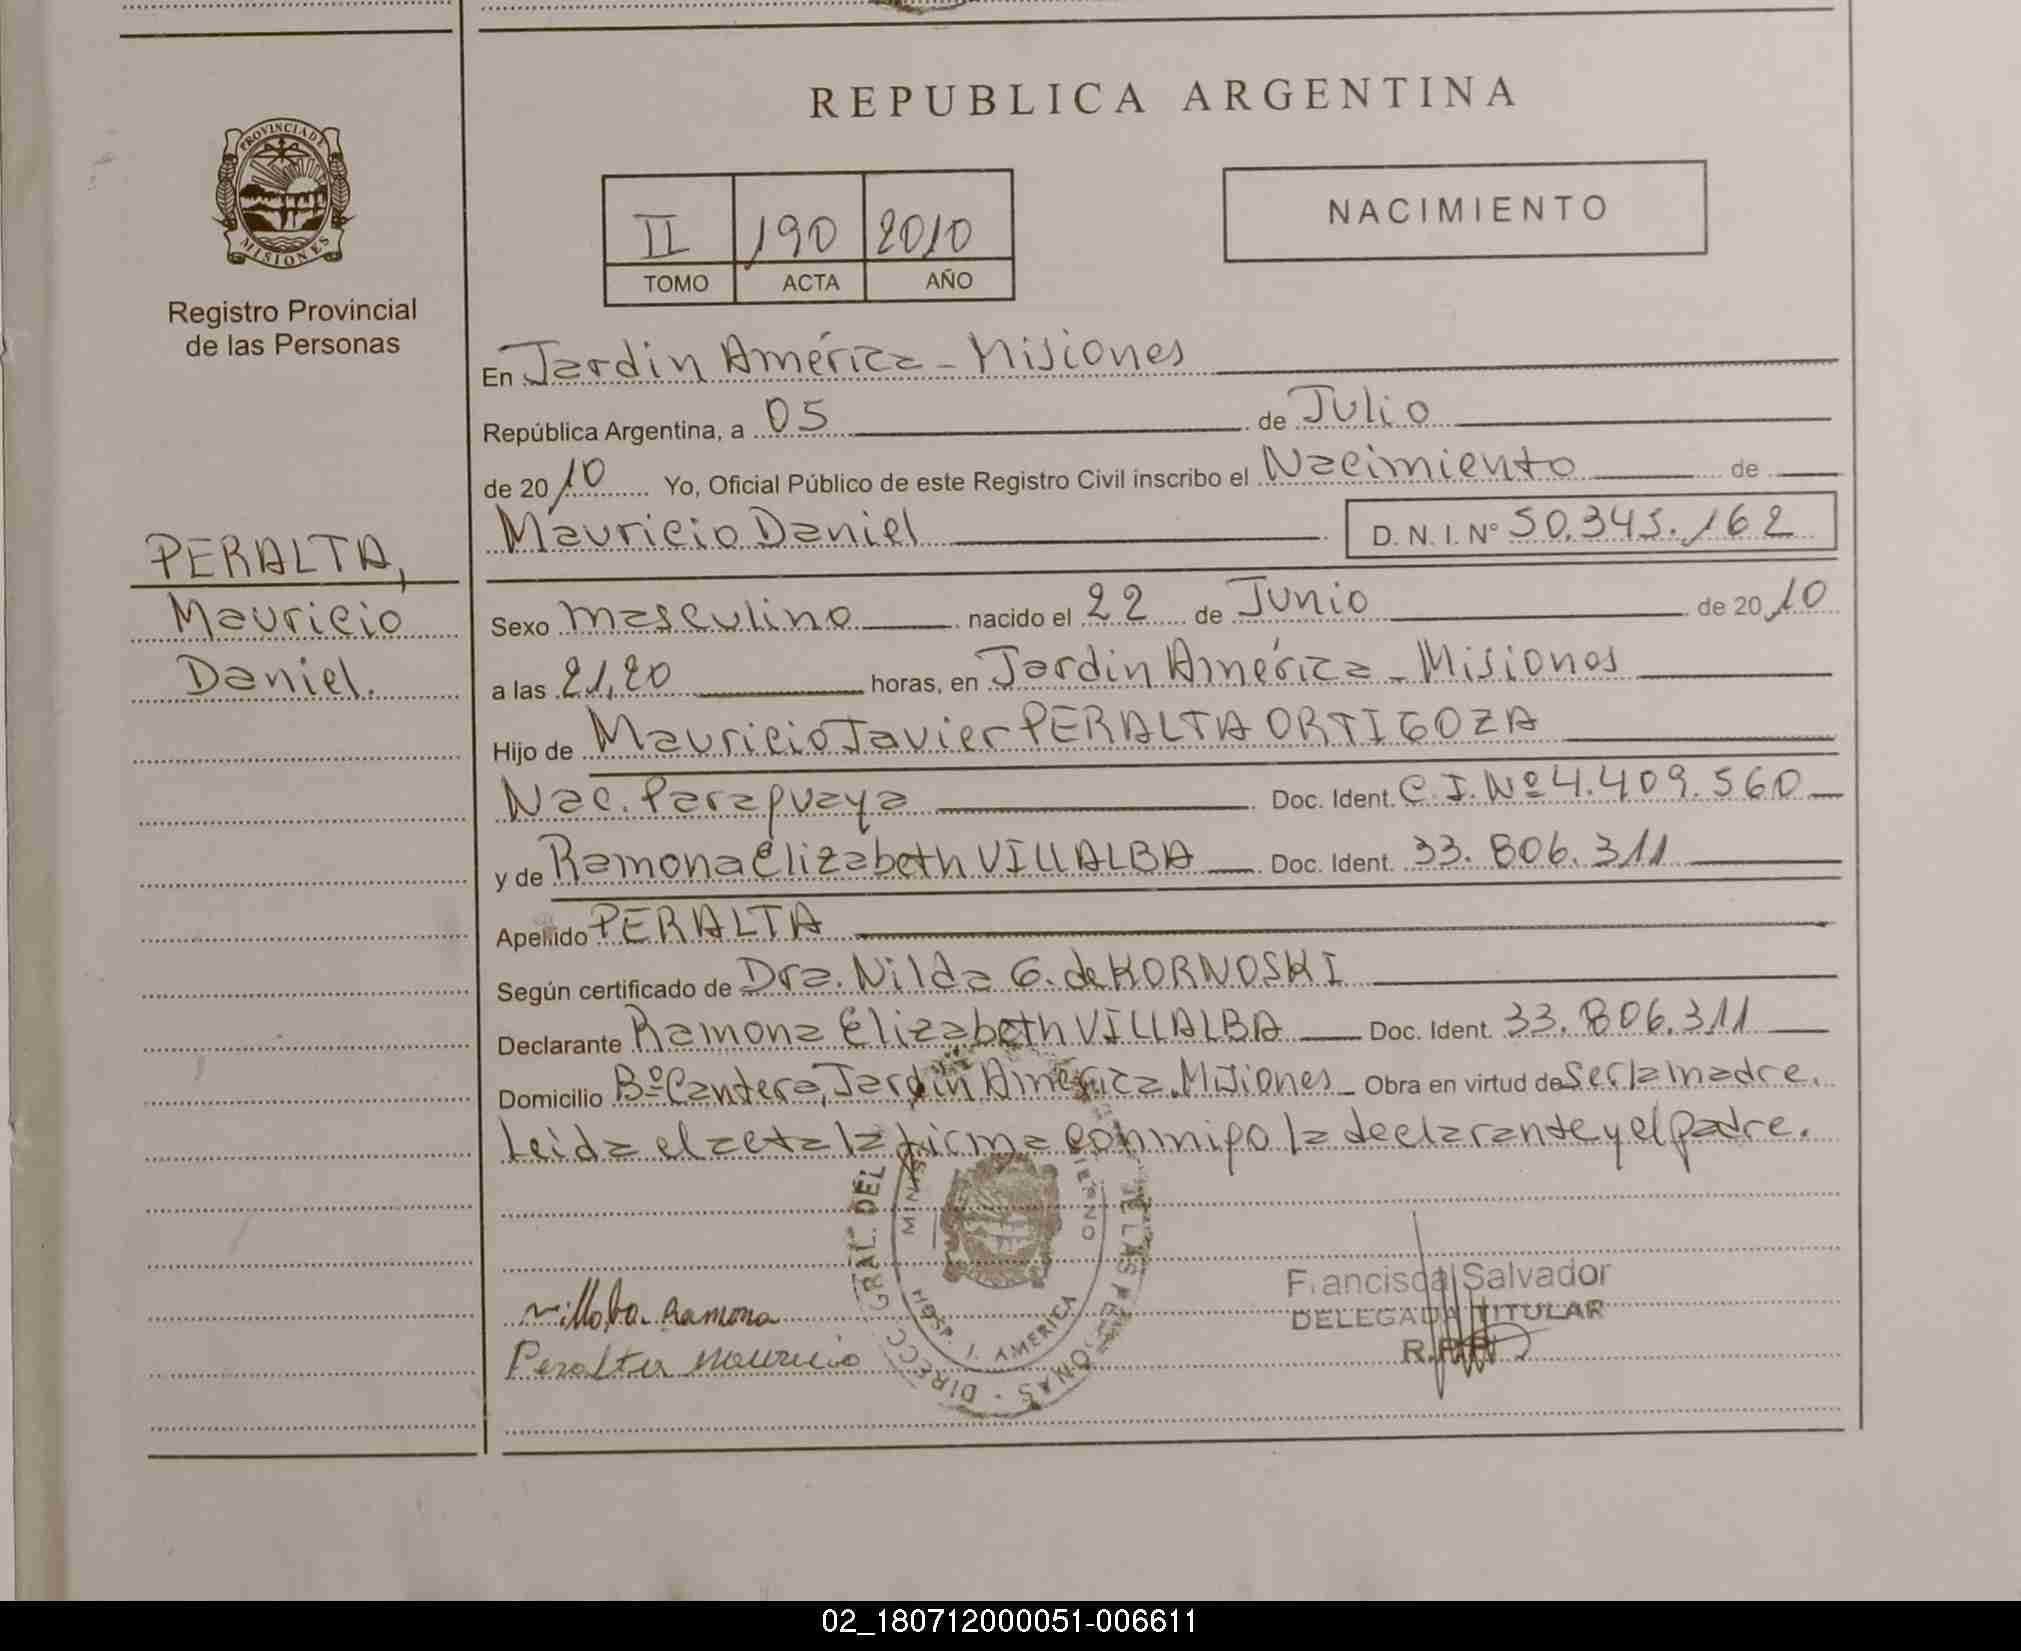 REPUBLICA ARGENTINA
PROVINCIA DE
MISIONES
Registro Provincial
de las Personas
II 190 2010
TOMO ACTA AÑO
NACIMIENTO
En Jardin América - Misiones
República Argentina, a 05 de Julio
de 2010 Yo, Oficial Público de este Registro Civil inscribo el Nacimiento de
Mauricio Daniel D. N. I. Nº 50.345.162
PERALTA,
Mauricio
Daniel.
Sexo masculino nacido el 22 de Junio de 2010
a las 21,20 horas, en Jardin América - Misiones
Hijo de Mauricio Javier PERALTA ORTIGOZA
Nac. Paraguaya Doc. Ident. C.I. Nº 4.409.560
y de Ramona Elizabeth VILLALBA Doc. Ident. 33.806.311
Apellido PERALTA
Según certificado de Dra. Nilda G. de KORNOSKI
Declarante Ramona Elizabeth VILLALBA Doc. Ident. 33.806.311
Domicilio Bº Cantera, Jardin América. Misiones - Obra en virtud de ser la madre.
Leida el acta la firma conmigo la declarante y el padre.
DIRECC. GRAL. DEL DE LAS PERSONAS
HOSP. J. AMERICA
Villalba Ramona
Peralta Mauricio
Francisca Salvador
DELEGADA TITULAR
R.P.P.
02_180712000051-006611